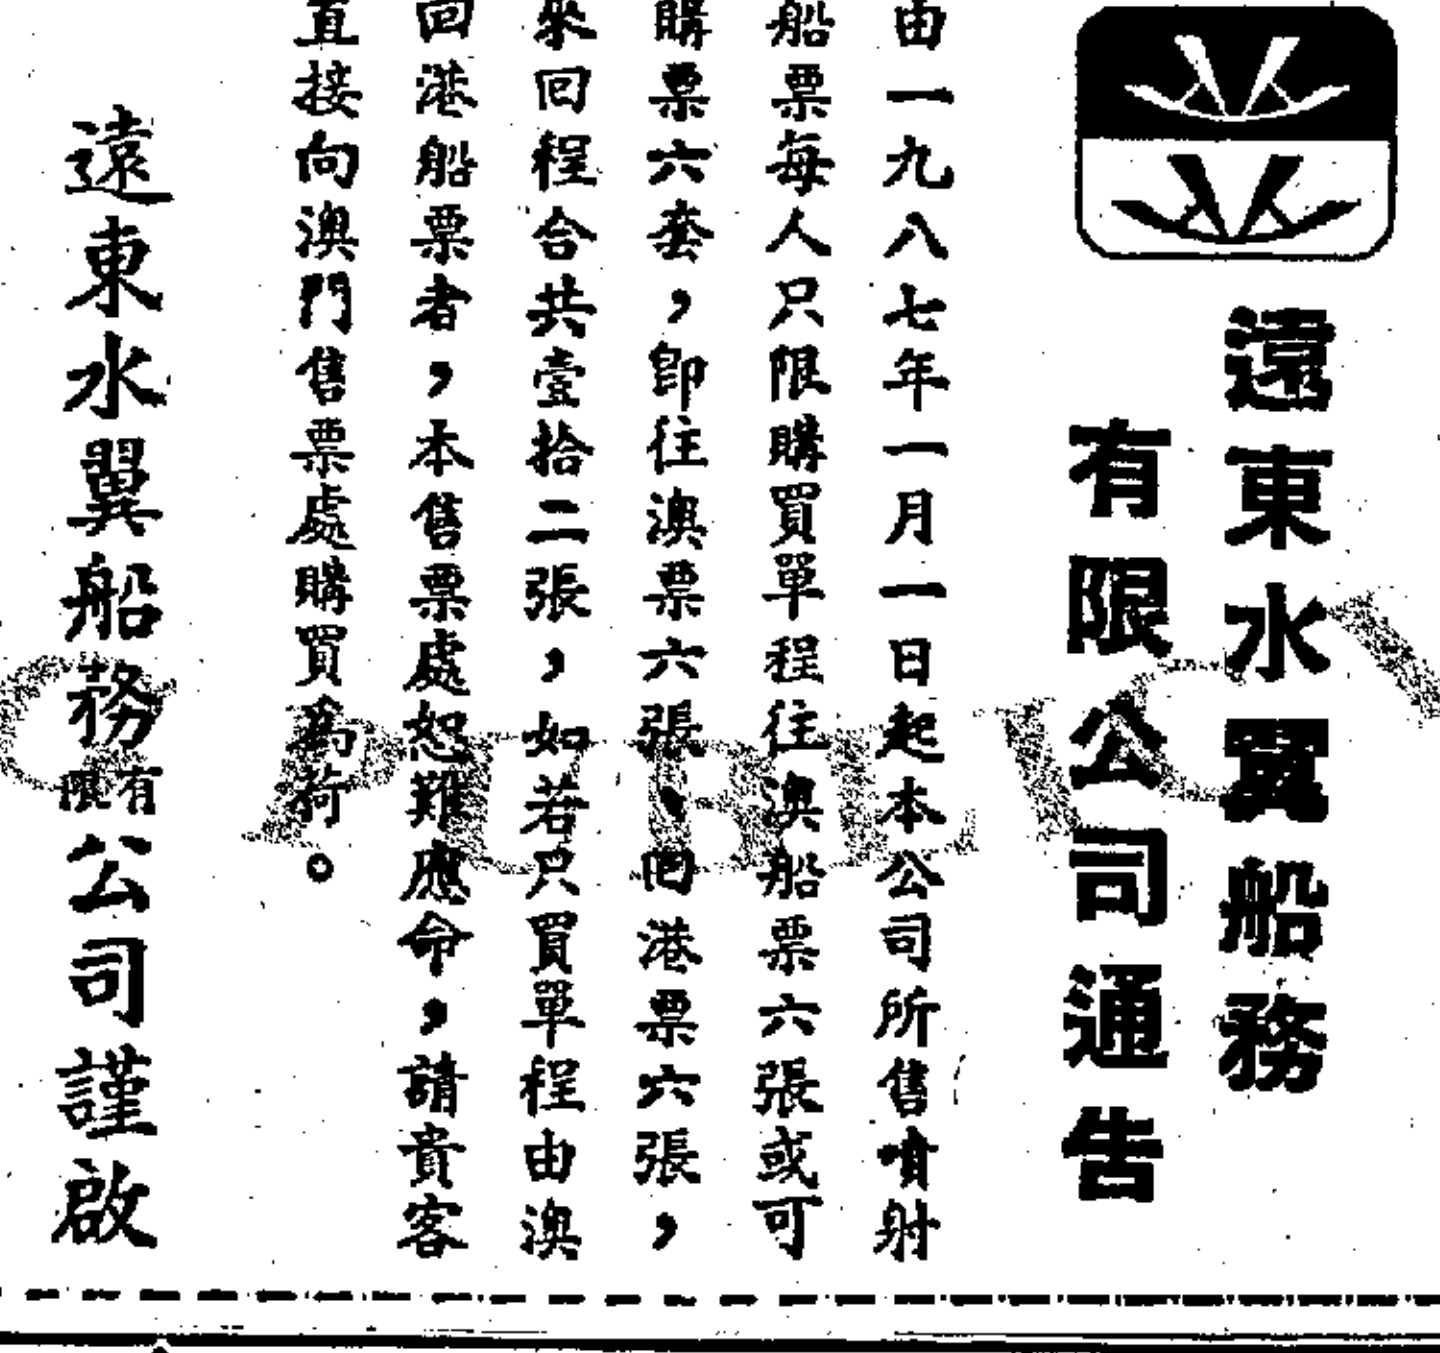 遠東水翼船務
有限公司通告
由一九八七年一月一日起本公司所售噴射
船票每人只限購買單程往澳船票六張或可
購票六套，即往澳票六張、回港票六張，
來回程合共壹拾二張，如若只買單程由澳
回港船票者，本售票處恕難應命，請貴客
直接向澳門售票處購買為荷。
遠東水翼船務有限公司謹啟